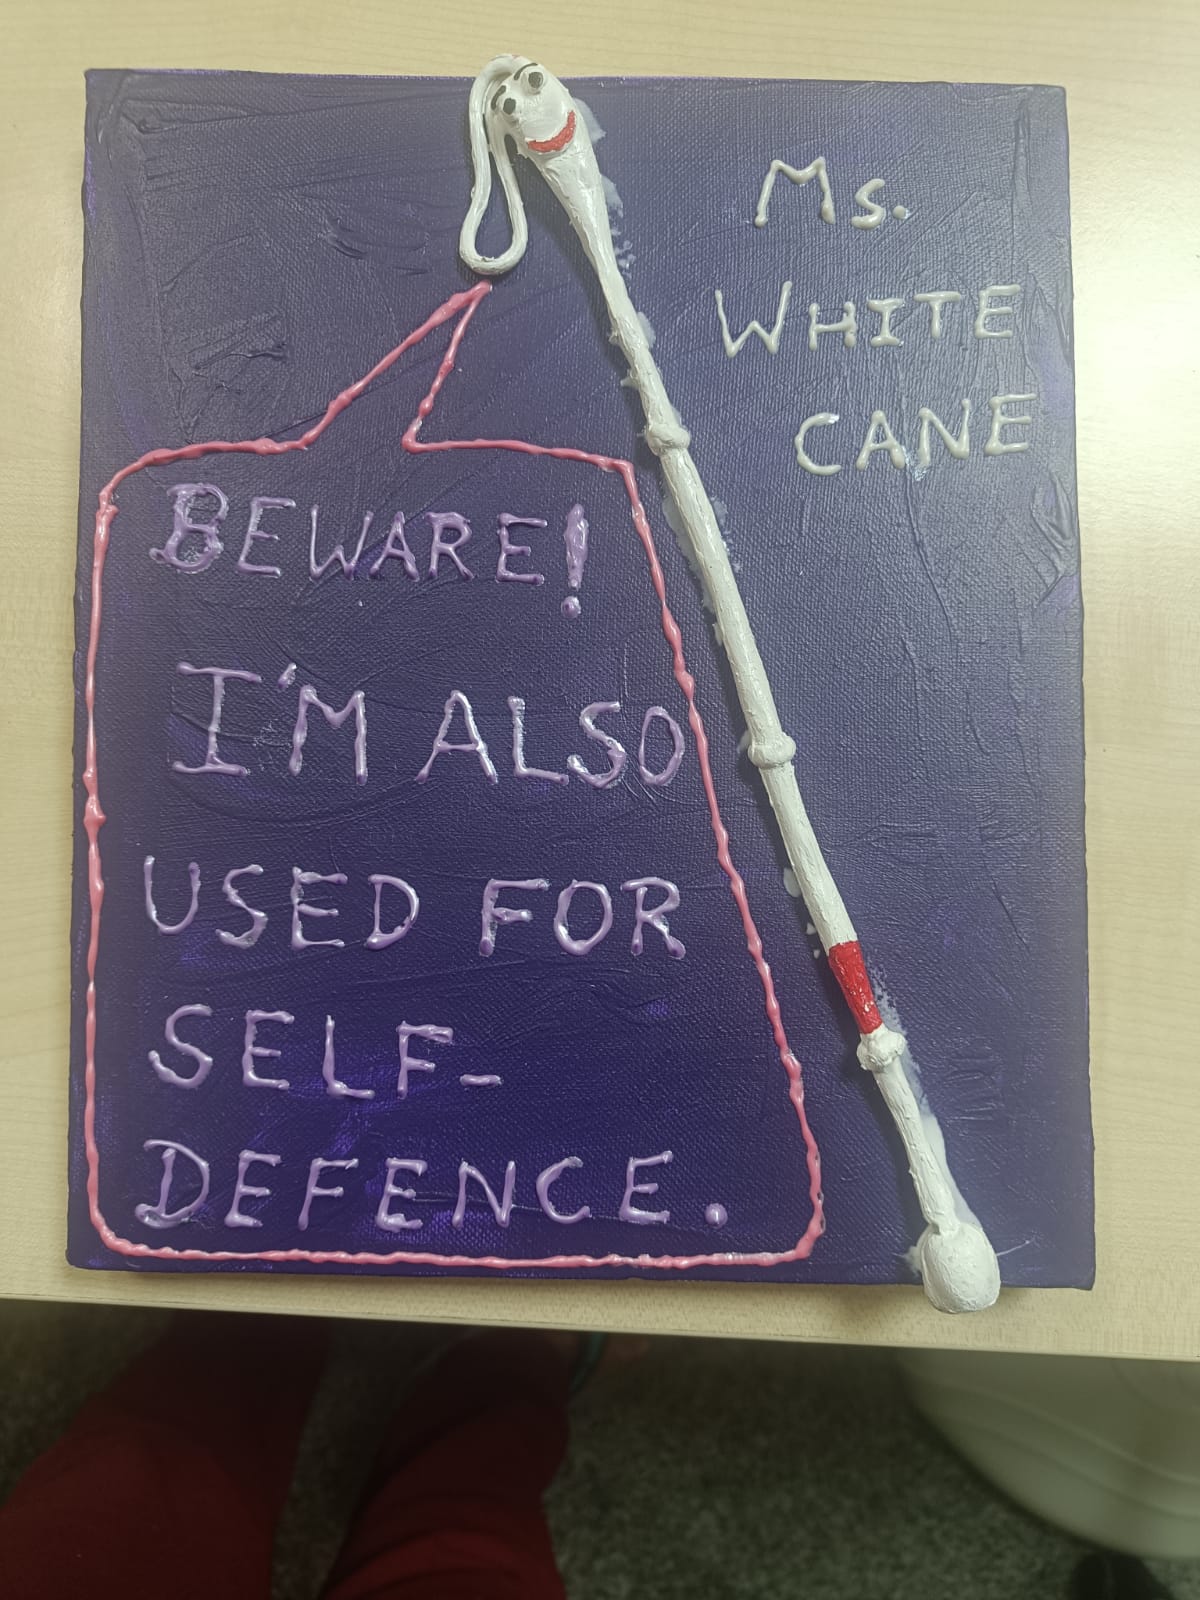 Ms.
WHITE
CANE
BEWARE!
I'M ALSO
USED FOR
SELF-
DEFENCE.